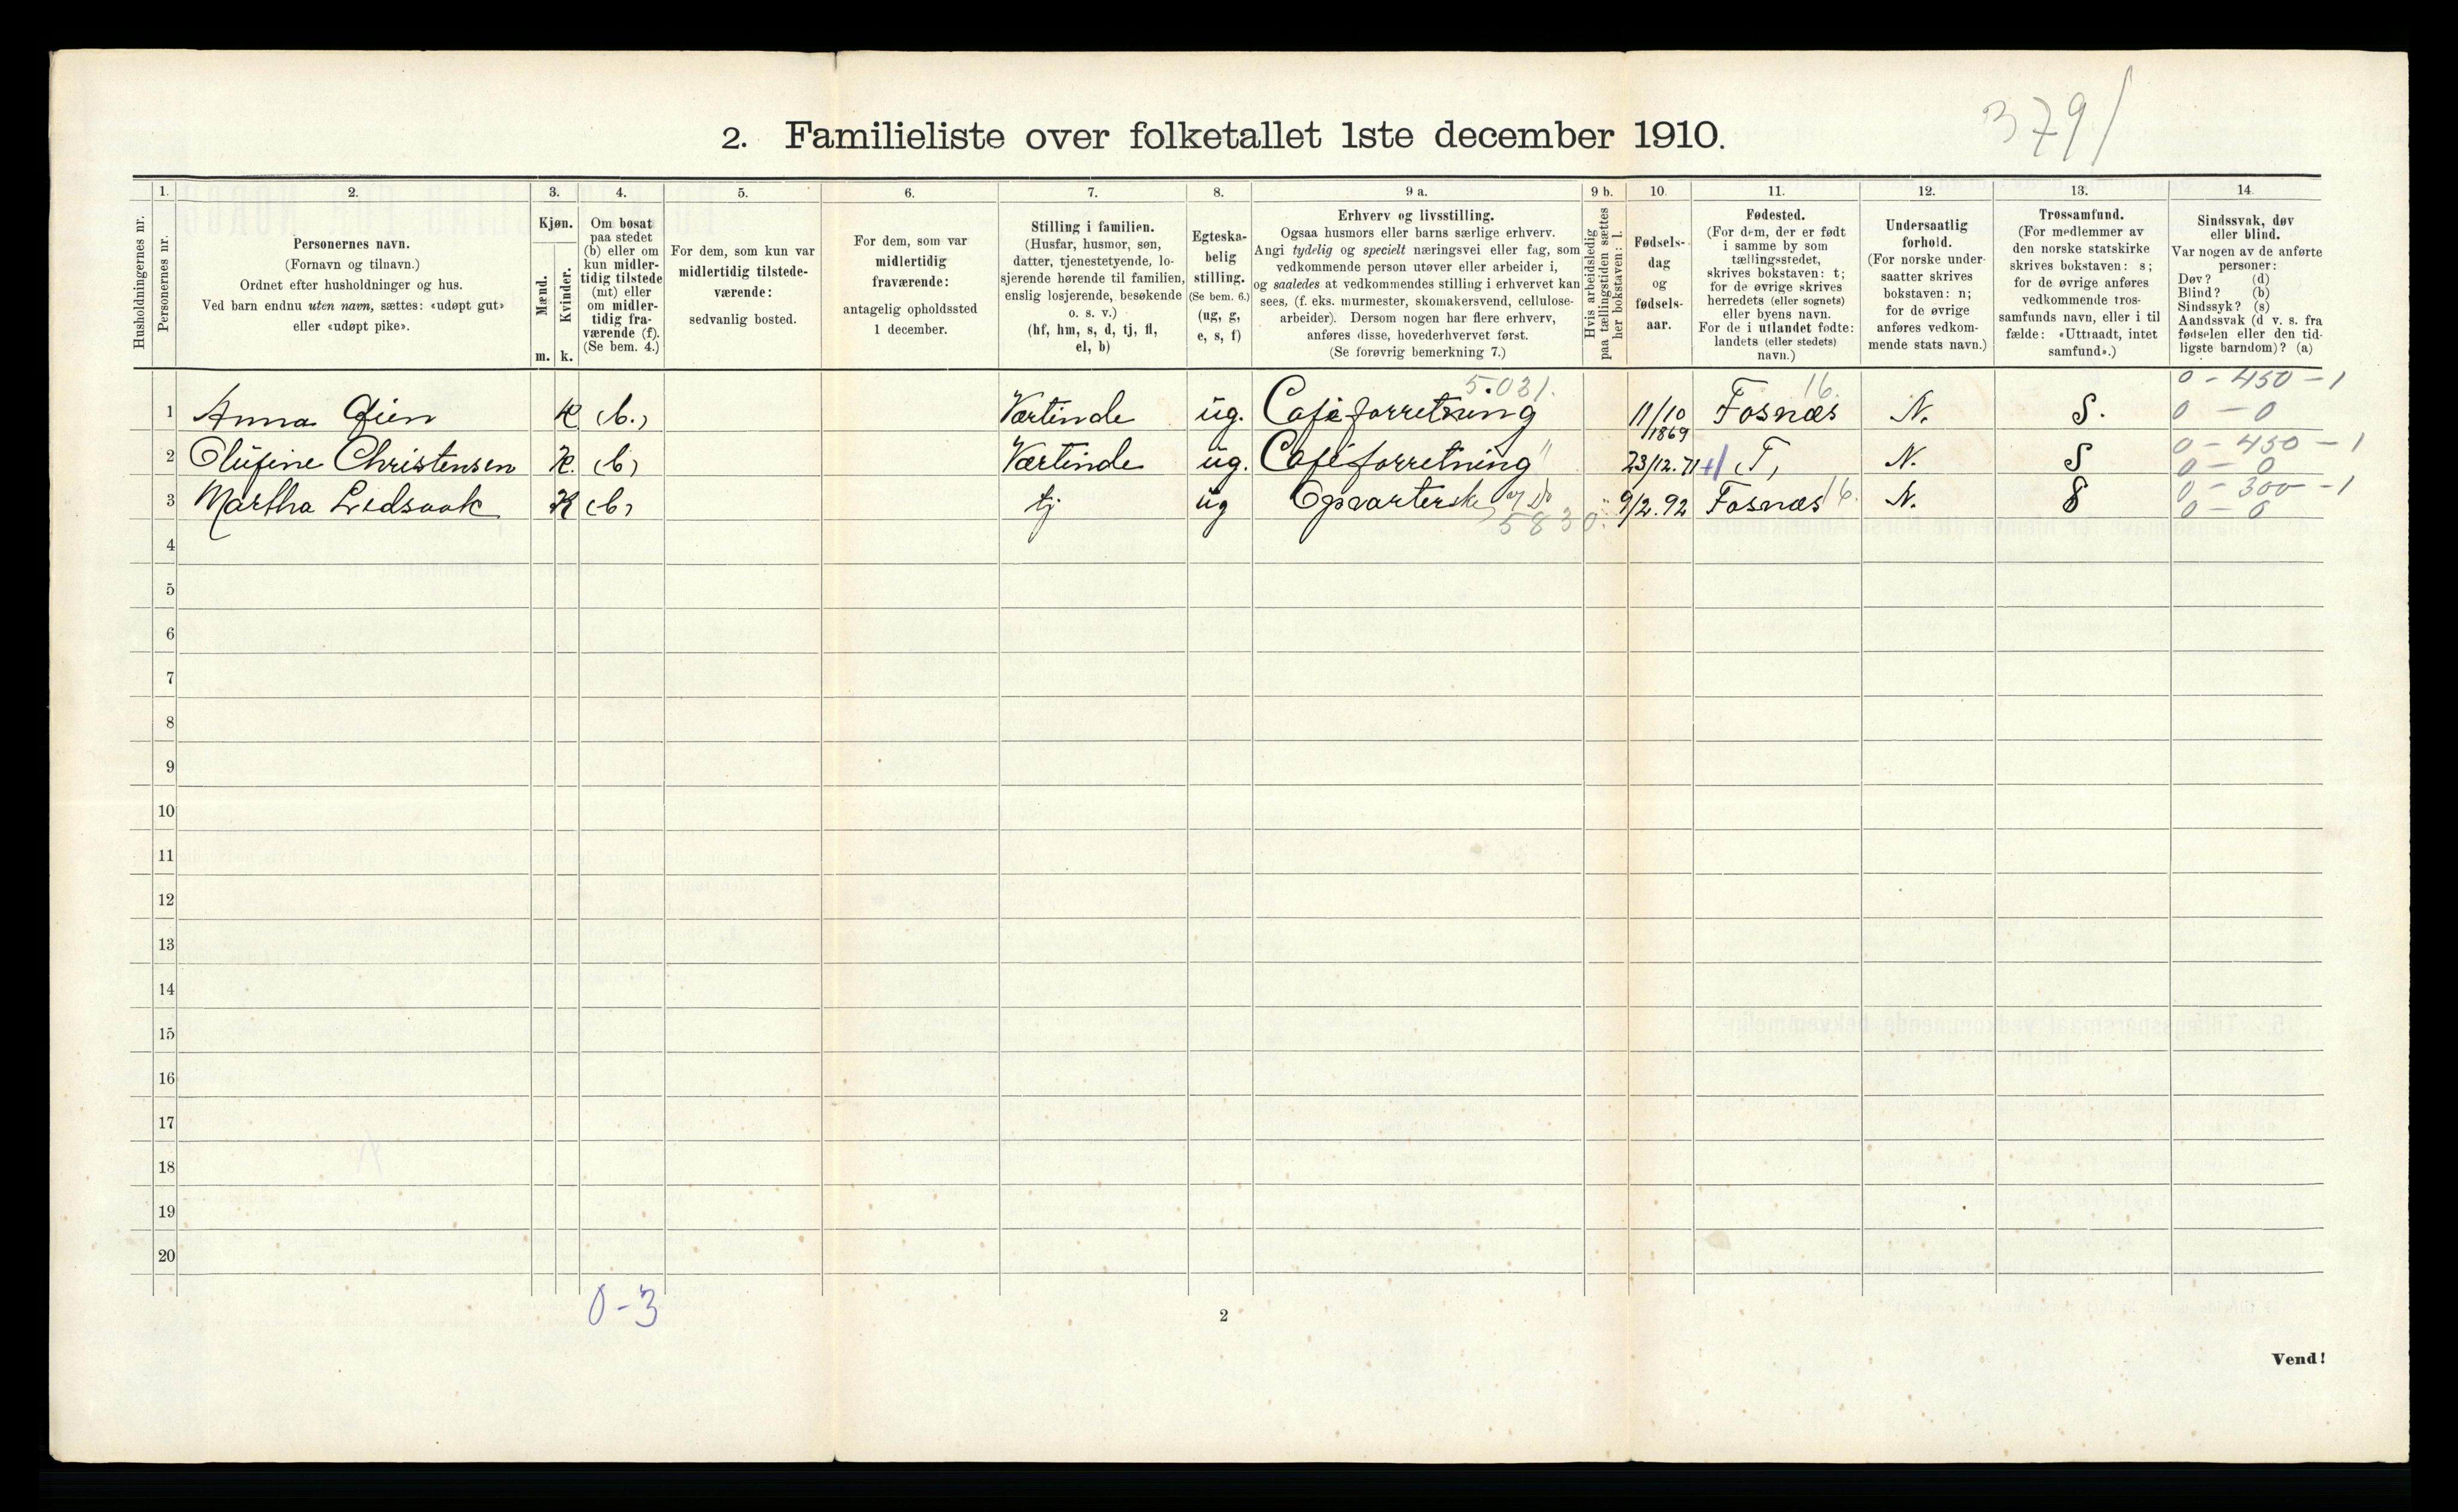 3791
2. Familieliste over folketallet 1ste december 1910.
1. 2. 3. 4. 5. 6. 7. 8. 9 a. 9 b. 10. 11. 12. 13. 14
Husholdningernes nr.
Personernes nr.
Personernes navn.
(Fornavn og tilnavn.)
Ordnet efter husholdninger og hus.
Ved barn endnu uten navn, sættes: «udøpt gut»
eller «udøpt pike».
Kjøn.
Mænd.
Kvinder.
m. k.
Om bosat
paa stedet
(b) eller om
kun midler-
tidig tilstede
(mt) eller
om midler-
tidig fra-
værende (f).
(Se bem. 4.)
For dem, som kun var
midlertidig tilstede-
værende:
sedvanlig bosted.
For dem, som var
midlertidig
fraværende:
antagelig opholdssted
1 december.
Stilling i familien.
(Husfar, husmor, søn,
datter, tjenestetyende, lo-
sjerende hørende til familien,
enslig losjerende, besøkende
o. s. v.)
(hf, hm, s, d, tj, fl,
el, b)
Egteska-
belig
stilling.
(Se bem. 6.)
(ug, g,
e, s, f)
Erhverv og livsstilling.
Ogsaa husmors eller barns særlige erhverv.
Angi tydelig og specielt næringsvei eller fag, som
vedkommende person utøver eller arbeider i,
og saaledes at vedkommendes stilling i erhvervet kan
sees, (f. eks. murmester, skomakersvend, cellulose-
arbeider). Dersom nogen har flere erhverv,
anføres disse, hovederhvervet først.
(Se forøvrig bemerkning 7.)
Hvis arbeidsledig
paa tællingstiden sættes
her bokstaven: l.
Fødsels-
dag
og
fødsels-
aar.
Fødested.
(For dem, der er født
i samme by som
tællingsstedet,
skrives bokstaven: t;
for de øvrige skrives
herredets (eller sognets)
eller byens navn.
For de i utlandet fødte:
landets (eller stedets)
navn.)
Undersaatlig
forhold.
(For norske under-
saatter skrives
bokstaven: n;
for de øvrige
anføres vedkom-
mende stats navn.)
Trossamfund.
(For medlemmer av
den norske statskirke
skrives bokstaven: s;
for de øvrige anføres
vedkommende tros-
samfunds navn, eller i til
fælde: «Uttraadt, intet
samfund».)
Sindssvak, døv
eller blind.
Var nogen av de anførte
personer:
Døv? (d)
Blind? (b)
Sindssyk? (s)
Aandssvak (d v. s. fra
fødselen eller den tid-
ligste barndom)? (a)
5.031. 16. 0 - 450 - 1
1 Anna Øien K (b.) Værtinde ug. Caféforretning 11/10 1869 Fosnæs N. S. 0 - 0
0 - 450 - 1
2 Olufine Christensen K. (b) Værtinde ug. Caféforretning " 23/12.71 T, N. S 0 - 0
0 - 300 - 1
3 Martha Ledsaak K (b) tj ug Opvarterske 9/2.92 Fosnæs 16. N. S 0 - 0
5830.
4
5
6
7
8
9
10
11
12
13
14
15
16
17
18
19
20
0-3
2
Vend!